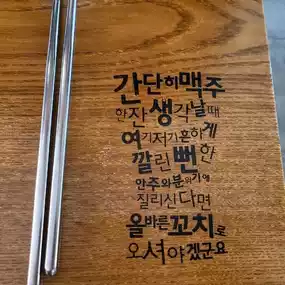 간단히맥주
한잔생각날때
여기저기흔하게
깔린뻔한
안주와분위기에
질리신다면
올바른꼬치로
오셔야겠군요